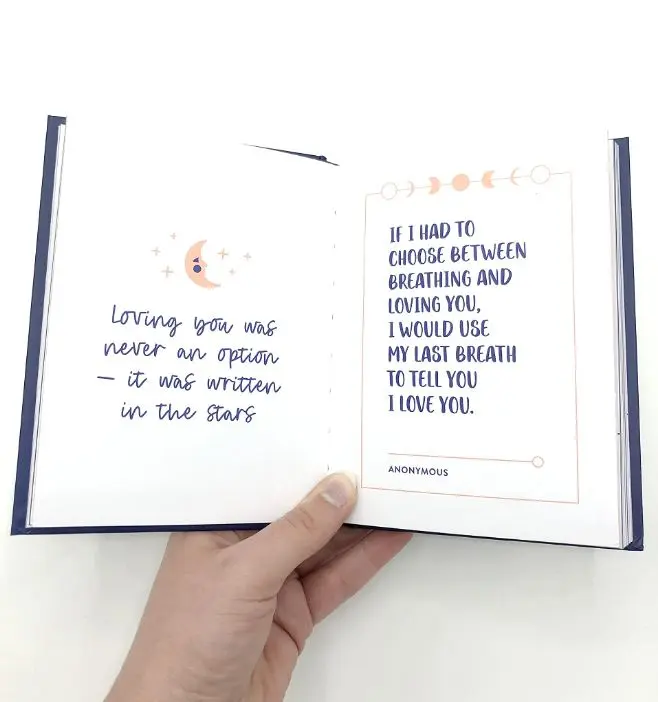 Loving you was
never an option
— it was written
in the stars
IF I HAD TO
CHOOSE BETWEEN
BREATHING AND
LOVING YOU,
I WOULD USE
MY LAST BREATH
TO TELL YOU
I LOVE YOU.
ANONYMOUS